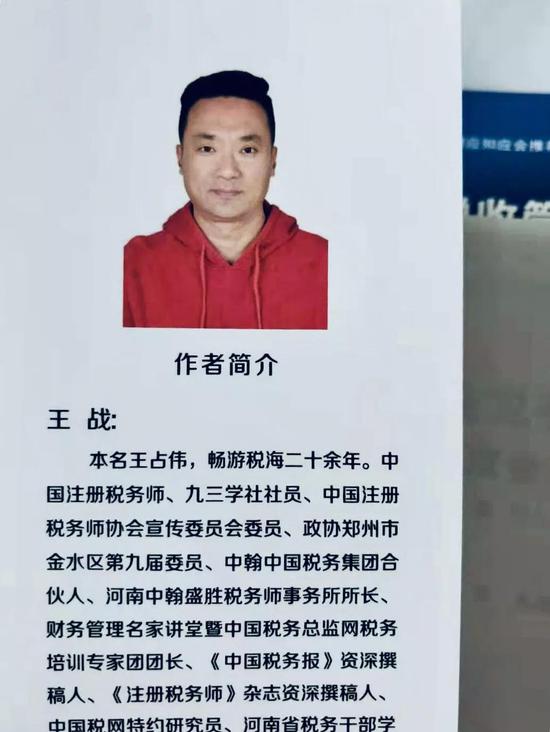 作者简介
王 战:
本名王占伟，畅游税海二十余年。中
国注册税务师、九三学社社员、中国注册
税务师协会宣传委员会委员、政协郑州市
金水区第九届委员、中翰中国税务集团合
伙人、河南中翰盛胜税务师事务所所长、
财务管理名家讲堂暨中国税务总监网税务
培训专家团团长、《中国税务报》资深撰
稿人、《注册税务师》杂志资深撰稿人、
中国税网特约研究员、河南省税务干部学
应知应会推
税收管